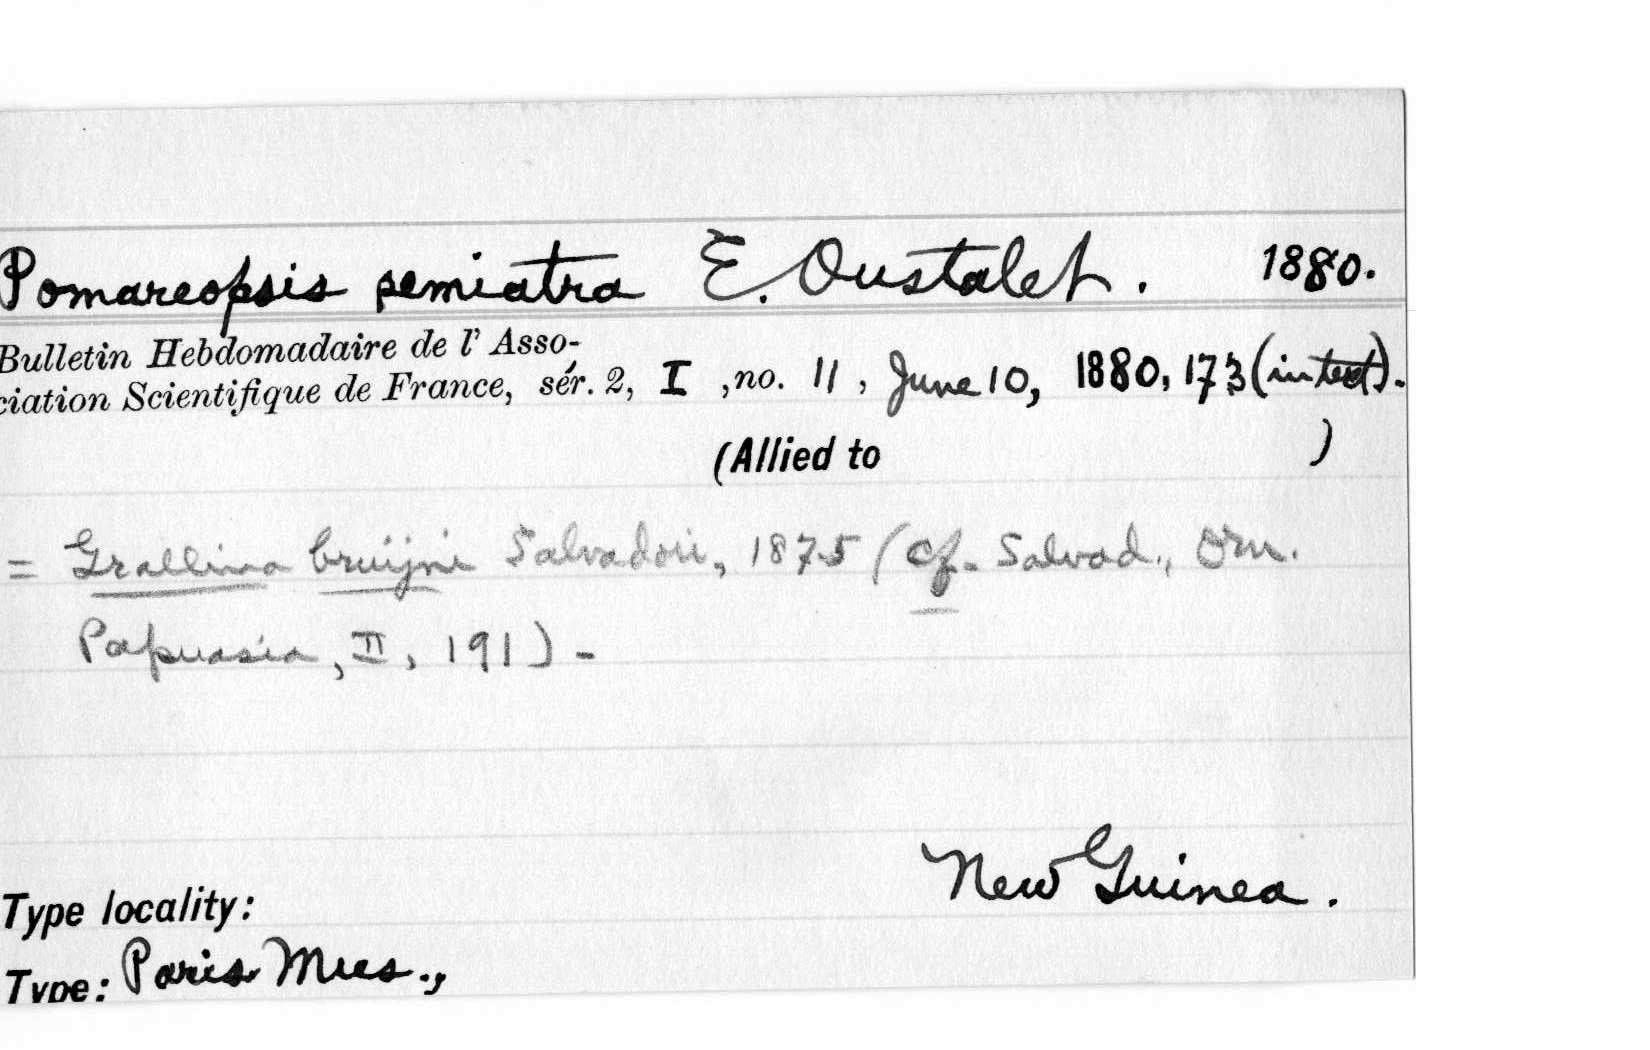 Pomareopsis semiatra E. Oustalet. 1880.
Bulletin Hebdomadaire de l' Asso-
ciation Scientifique de France, sér. 2, I , no. 11 , June 10, 1880, 173 (in text).
(Allied to )
= Grallina bruijni Salvadori, 1875 (cf. Salvad., Orn.
Papuasia, II, 191) -
New Guinea.
Type locality:
Type: Paris Mus.,